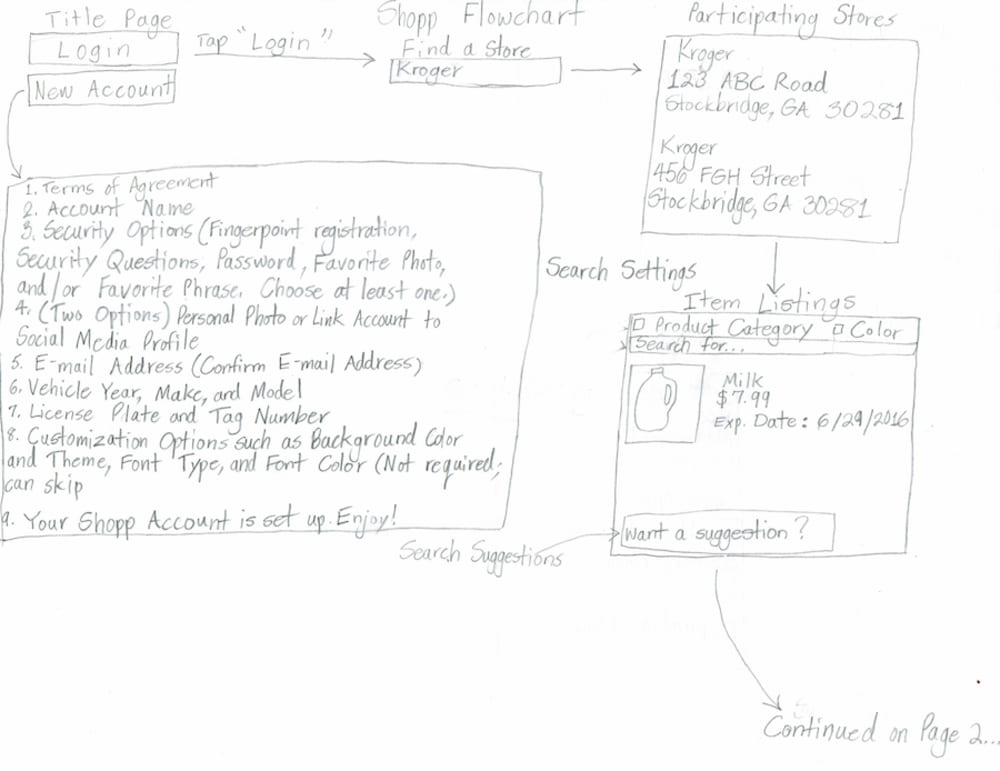 Title Page
Login
New Account
Tap "Login"
Shopp Flowchart
Find a Store
Kroger
Participating Stores
Kroger
123 ABC Road
Stockbridge, GA 30281
Kroger
456 FGH Street
Stockbridge, GA 30281
1. Terms of Agreement
2. Account Name
3. Security Options (Fingerpoint registration,
Security Questions, Password, Favorite Photo,
and/or Favorite Phrase. Choose at least one.)
4. (Two Options) Personal Photo or Link Account to
Social Media Profile
5. E-mail Address (Confirm E-mail Address)
6. Vehicle Year, Make, and Model
7. License Plate and Tag Number
8. Customization Options such as Background Color
and Theme, Font Type, and Font Color (Not required;
can skip
9. Your Shopp Account is set up. Enjoy!
Search Settings
Item Listings
Product Category Color
Search for...
Milk
$7.99
Exp. Date: 6/29/2016
Want a suggestion?
Search Suggestions
Continued on Page 2...